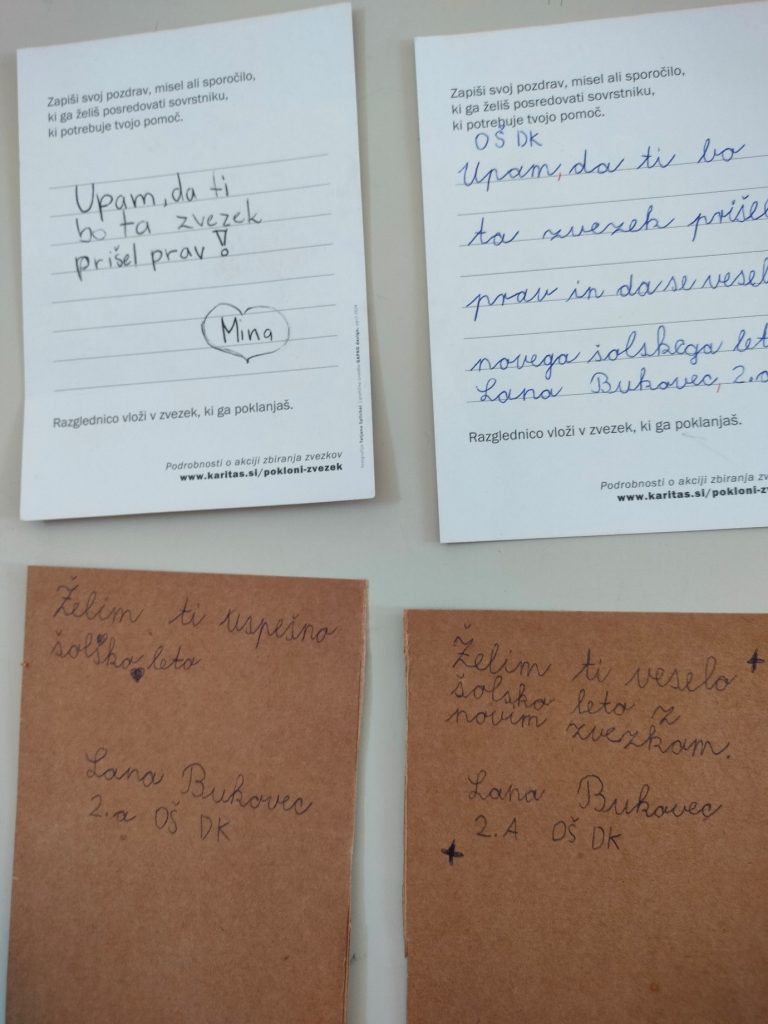 Zapiši svoj pozdrav, misel ali sporočilo,
ki ga želiš posredovati sovrstniku,
ki potrebuje tvojo pomoč.
Upam, da ti
bo ta zvezek
prišel prav!
Mina
Razglednico vloži v zvezek, ki ga poklanjaš.
Podrobnosti o akciji zbiranja zvezkov
www.karitas.si/pokloni-zvezek
Zapiši svoj pozdrav, misel ali sporočilo,
ki ga želiš posredovati sovrstniku,
ki potrebuje tvojo pomoč.
OŠ DK
Upam, da ti bo
ta zvezek prišel
prav in da se vesel
novega šolskega let
Lana Bukovec, 2.a
Razglednico vloži v zvezek, ki ga poklanjaš.
Podrobnosti o akciji zbiranja zv
www.karitas.si/pokloni-zv
Želim ti uspešno
šolsko leto
Lana Bukovec
2.a OŠ DK
Želim ti veselo
šolsko leto z
novim zvezkom.
Lana Bukovec
2.A OŠ DK